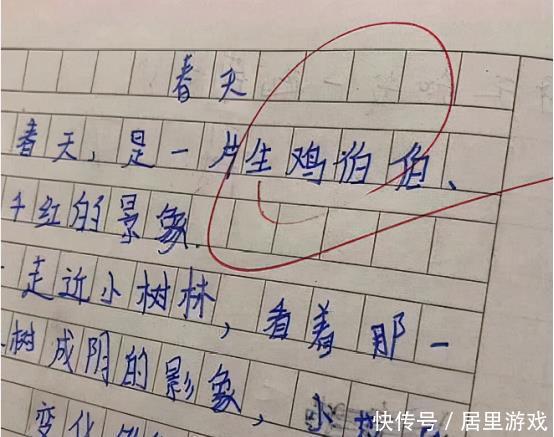 春天
春天，是一片生鸡伯伯、
千红的景象.
走近小树林，看着那一
树成阴的影象，小
变化
快传号 / 居里游戏